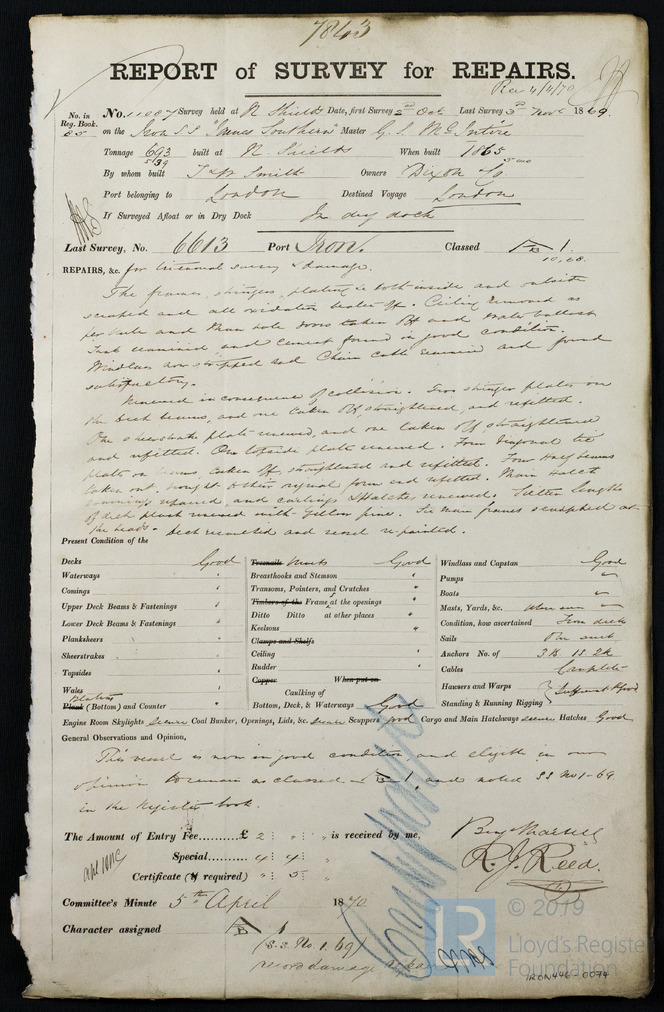 7843
REPORT of SURVEY for REPAIRS.
Rec 4/4/70
No. in Reg. Book.
No. 11007 Survey held at N Shields Date, first Survey 2nd Oct Last Survey 3rd Novr 1869.
on the Iron S.S. "James Southern" Master G. S. McIntire
Tonnage 693 built at N. Shields When built 1865
539
By whom built T & W Smith Owners Dixon & Co
Port belonging to London Destined Voyage London
If Surveyed Afloat or in Dry Dock In dry dock
Last Survey, No. 6613 Port Iron. Classed A 1.
10,68.
REPAIRS, &c. for biennial survey & damage.
The frames, stringers, plating &c both inside and outside
scraped and all oxidation beaten off. Ceiling removed as
per rule and Man hole doors taken off and Water ballast
Tank examined and cement found in good condition.
Windlass unstripped and Chain cable examined and found
satisfactory.
Renewed in consequence of collision. Two stringer plates on
the deck beams, and one taken off, straightened, and refitted.
One sheerstrake plate renewed, and one taken off straightened
and refitted. One topside plate renewed. Four diagonal tie
plates on beams, taken off, straightened and refitted. Four half beams
taken out, brought to their orignal form and refitted. Main hatch
coamings repaired, and carlings & Hatches renewed. lengths
of deck plank renewed with Yellow pine. Six main frames scarphed at
the heads. deck recaulked and vessel re-painted.
Present Condition of the
Decks Good
Waterways "
Comings "
Upper Deck Beams & Fastenings "
Lower Deck Beams & Fastenings "
Planksheers "
Sheerstrakes "
Topsides "
Wales
Plating
Plank (Bottom) and Counter "
Treenails Rivets Good
Breasthooks and Stemson "
Transoms, Pointers, and Crutches "
Timbers of the Frame at the openings "
Ditto Ditto at other places "
Keelsons "
Clamps and Shelfs
Ceiling "
Rudder "
Copper When put on
Caulking of
Bottom, Deck, & Waterways Good
Windlass and Capstan Good
Pumps "
Boats "
Masts, Yards, &c. "
Condition, how ascertained From deck
Sails
Anchors No. of 3 B. 1 S. 2 K
Cables Complete
Hawsers and Warps
Standing & Running Rigging } Sufficient & good
Engine Room Skylights Secure Coal Bunker, Openings, Lids, &c. Secure Scuppers good Cargo and Main Hatchways secure Hatches Good
General Observations and Opinion,
This vessel is now in good condition, and eligible in our
opinion to remain as classed A 1, and noted SS No 1-69
in the Register book.
The Amount of Entry Fee.......... £ 2 : " : " is received by me,
Special........ 4 : 4 : "
Certificate (if required) " : 5 : "
Benj Martell
R. J. Reed.
Committee's Minute 5th April 1870
Character assigned A 1
(S.S. No. 1. 69)
record damage repairs
© 2019
LR
Lloyd's Register
Foundation
IRON446-0074